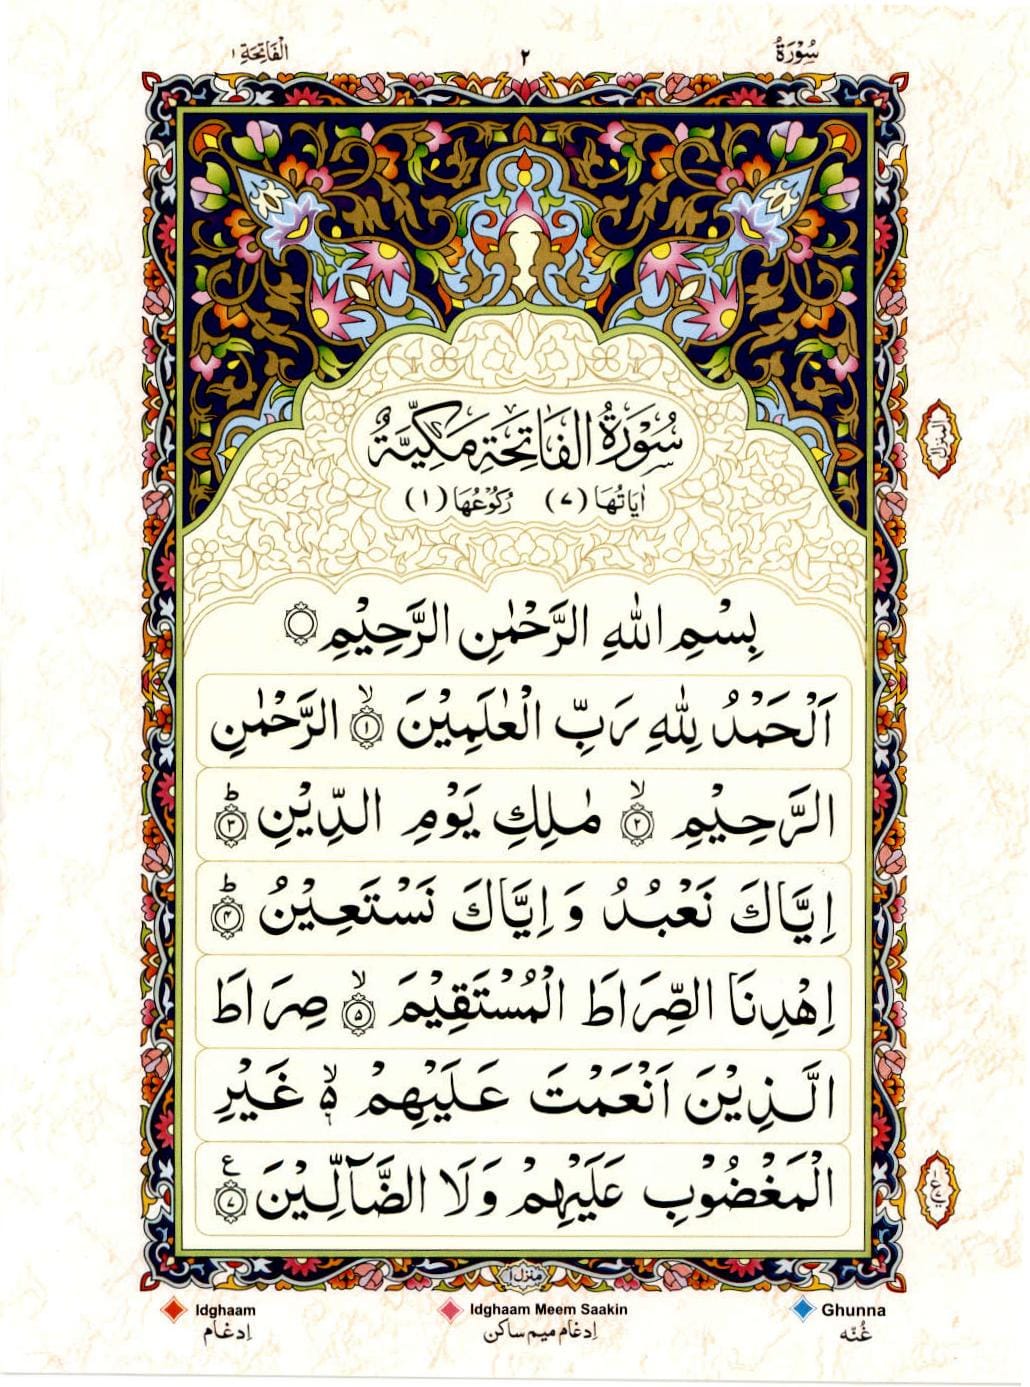 سُوْرَةُ ٢ الْفَاتِحَةِ ١
سُوْرَةُ الْفَاتِحَةِ مَكِّيَّةٌ
اٰيَاتُهَا (٧) رُكُوْعُهَا (١)
المنزل
بِسْمِ اللّٰهِ الرَّحْمٰنِ الرَّحِيْمِ
اَلْحَمْدُ لِلّٰهِ رَبِّ الْعٰلَمِيْنَ ۙ﴿١﴾ الرَّحْمٰنِ
الرَّحِيْمِ ۙ﴿٢﴾ مٰلِكِ يَوْمِ الدِّيْنِ ؕ﴿٣﴾
اِيَّاكَ نَعْبُدُ وَ اِيَّاكَ نَسْتَعِيْنُ ؕ﴿۴﴾
اِهْدِنَا الصِّرَاطَ الْمُسْتَقِيْمَ ۙ﴿۵﴾ صِرَاطَ
الَّذِيْنَ اَنْعَمْتَ عَلَيْهِمْ ۙ۬ غَيْرِ
الْمَغْضُوْبِ عَلَيْهِمْ وَلَا الضَّآلِّيْنَ ﴿٧﴾ ع
منزل ١
Idghaam Idghaam Meem Saakin Ghunna
اِدغام اِدغام ميم ساكن غُنّه